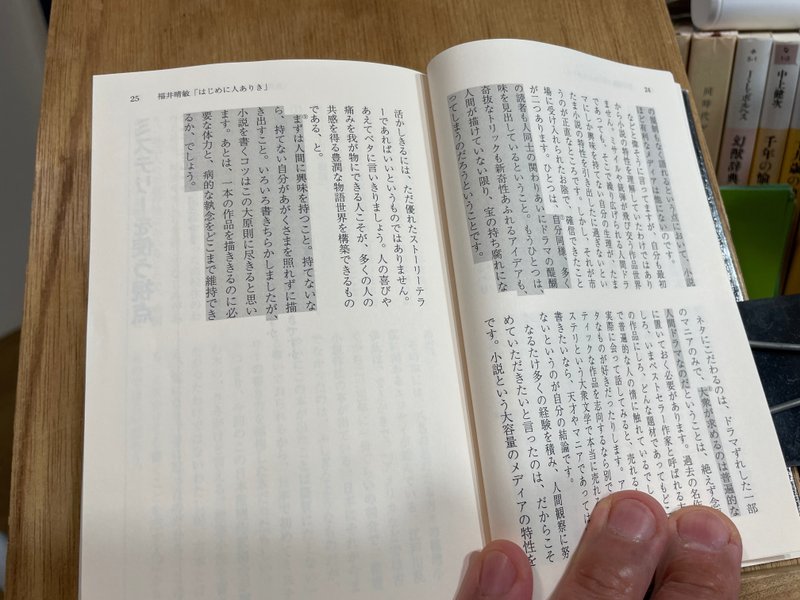 24
という点において、小説
ほど有利なメディアは他にないのです。
などと偉そうに言ってますが、自分も最初
から小説の特性を理解していたわけではあり
ません。ミサイルや銃弾が飛び交う作品世界
であっても、そこで繰り広げられる人間ドラ
マにしか興味を持てない自分の生理が、たま
たま小説の特性を引き出したに過ぎないとい
うのが正直なところです。しかし、それが市
場に受け入れられたお陰で、確信できたこと
が二つあります。ひとつは、自分同様、多く
の読者も人間同士の関わりあいにドラマの醍醐
味を見出しているということ。もうひとつは、
奇抜なトリックも新奇性あふれるアイデアも、
人間が描けていない限り、宝の持ち腐れにな
ってしまうのだろうということです。
ネタにこだわるのは、ドラマずれした一部
のマニアのみで、大衆が求めるのは普遍的な
人間ドラマなのだということは、絶えず念
に置いておく必要があります。過去の名作
しろ、いまベストセラー作家と呼ばれる
の作品にしろ、どんな題材であってもど
で普遍的な人の情に触れているでし
実際に会って話してみると、売れる
タなものが好きだったりします。ア
ティックな作品を志向するなら別で
ステリという大衆文学で本当に売れる
書きたいなら、天才やマニアであっては
ないというのが自分の結論です。
なるたけ多くの経験を積み、人間観察に努
めていただきたいと言ったのは、だからこそ
です。小説という大容量のメディアの特性を
25 福井晴敏「はじめに人ありき」
活かしきるには、ただ優れたストーリーテラ
ーであればいいというものではありません。
あえてベタに言いきりましょう。人の喜びや
痛みを我が物にできる人こそが、多くの人の
共感を得る豊潤な物語世界を構築できるもの
である、と。
まずは人間に興味を持つこと。持てないな
ら、持てない自分があがくさまを照れずに描
き出すこと。いろいろ書きちらかしましたが、
小説を書くコツはこの大原則に尽きると思い
ます。あとは、一本の作品を描ききるのに必
要な体力と、病的な執念をどこまで維持でき
るか、でしょう。
幻獣辞典
中上健次
千年の愉